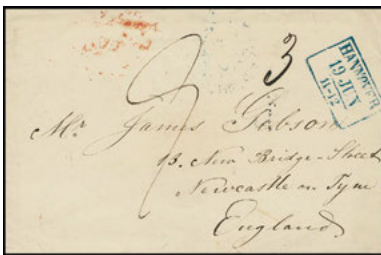 3
HANNOVER
19 JUN
11-12
Mr. James Gibson
13. New Bridge-Street
Newcastle on Tyne
England